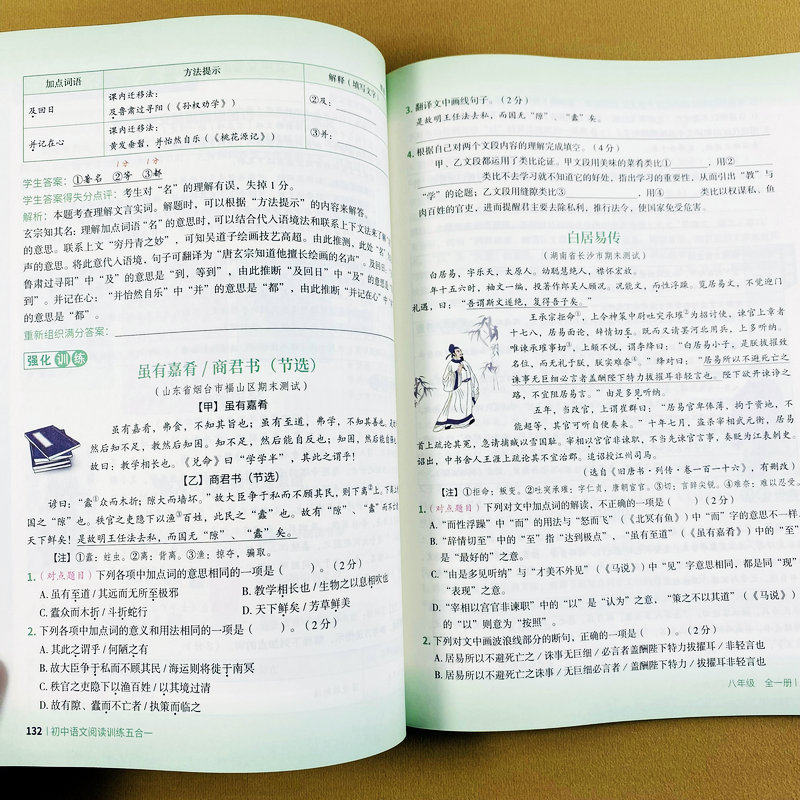 加点词语 方法提示 解释（填写文字）
课内迁移法:
及回日 及鲁肃过寻阳（《孙权劝学》） ②及：
课内迁移法:
并记在心 黄发垂髫，并怡然自乐（《桃花源记》） ③并：
1分 1分
学生答案：①著名 ②等 ③都
学生答案得失分点评：考生对“名”的理解有误，失掉1分。
解析：本题考查理解文言实词。解题时，可以根据“方法提示”的内容来解答。
玄宗知其名：理解加点词语“名”的意思时，可以结合代入语境法和联系上下文法来了解
的意思。联系上文“穷丹青之妙”，可知吴道子绘画技艺高超。由此推测，此处“名”
声的意思。将此意代入语境，句子可翻译为“唐玄宗知道他擅长绘画的名声”。及回日
鲁肃过寻阳”中“及”的意思是“到，等到”，由此推断“及回日”中“及”的意思是
到”。并记在心：“并怡然自乐”中“并”的意思是“都”，由此推断“并记在心”中
的意思是“都”。
重新组织满分答案：
强化训练
虽有嘉肴/商君书（节选）
（山东省烟台市福山区期末测试）
【甲】虽有嘉肴
虽有嘉肴，弗食，不知其旨也；虽有至道，弗学，不知其善也。
然后知不足，教然后知困。知不足，然后能自反也；知困，然后能自强
故曰：教学相长也。《兑命》曰“学学半”，其此之谓乎！
【乙】商君书（节选）
谚曰：“蠹①众而木折；隙大而墙坏。”故大臣争于私而不顾其民，则下离②上。下离上
国之“隙”也。秩官之吏隐下以渔③百姓，此民之“蠹”也。故有“隙”、“蠹”而不亡
天下鲜矣！是故明王任法去私，而国无“隙”、“蠹”矣。
【注】①蠹：蛀虫。②离：背离。③渔：掠夺，骗取。
1.（对点题目）下列各项中加点词的意思相同的一项是（ ）。（2分）
A. 虽有至道/其远而无所至极邪 B. 教学相长也/生物之以息相吹也
C. 蠹众而木折/斗折蛇行 D. 天下鲜矣/芳草鲜美
2. 下列各项中加点词的意义和用法相同的一项是（ ）。（2分）
A. 其此之谓乎/何陋之有
B. 故大臣争于私而不顾其民/海运则将徙于南冥
C. 秩官之吏隐下以渔百姓/以其境过清
D. 故有隙、蠹而不亡者/执策而临之
132 | 初中语文阅读训练五合一
3. 翻译文中画线句子。（2分）
是故明王任法去私，而国无“隙”、“蠹”矣。
4. 根据自己对两个文段内容的理解完成填空。（4分）
甲、乙文段都运用了类比论证。甲文段用美味的菜肴类比① ，用②
类比不去学习就不知道它的好处，指出学习的重要性，从而引出“教”与
“学”的论题；乙文段用缝隙类比③ ，用④ 类比以权谋私、鱼
肉百姓的官吏，进而提醒君主要去除私利，推行法令，使国家免受危害。
白居易传
（湖南省长沙市期末测试）
白居易，字乐天，太原人。幼聪慧绝人，襟怀宏放。
年十五六时，袖文一编，投著作郎吴人顾况。况能文，而性浮躁。览居易文，不觉迎门
礼遇，曰：“吾谓斯文遂绝，复得吾子矣。”
王承宗拒命①，上令神策中尉吐突承璀②为招讨使，谏官上章者
十七八，居易面论，辞情切至。既而又请罢河北用兵，上多听纳。
唯谏承璀事切③，上颇不悦，谓李绛曰：“白居易小子，是朕拔擢致
名位，而无礼于朕，朕实难奈④。”绛对曰：“居易所以不避死亡之
诛事无巨细必言者盖酬陛下特力拔擢耳非轻言也。陛下欲开谏诤之
路，不宜阻居易言。”由是多见听纳。
五年，当改官，上谓崔群曰：“居易官卑俸薄，拘于资地，不
能超等，其官可听自便奏来。”十年七月，盗杀宰相武元衡，居易
首上疏论其冤，急请捕贼以雪国耻。宰相以宫官非谏职，不当先谏官言事，奏贬为江表刺史。
诏出，中书舍人王涯上疏论其不宜治郡，追诏授江州司马。
（选自《旧唐书·列传·卷一百一十六》，有删改）
【注】①拒命：叛变。②吐突承璀：字仁贞，唐朝宦官。③切：言辞尖锐。④难奈：难以忍受。
1.（对点题目）下列对文中加点词的解读，不正确的一项是（ ）（2分）
A. “而性浮躁”中“而”的用法与“怒而飞”（《北冥有鱼》）中“而”字的意思不一样。
B. “辞情切至”中的“至”指“达到极点”，“虽有至道”（《虽有嘉肴》）中的“至”
是“最好的”之意。
C. “由是多见听纳”与“才美不外见”（《马说》）中“见”字意思相同，都是同“现”
“表现”之意。
D. “宰相以宫官非谏职”中的“以”是“认为”之意，“策之不以其道”（《马说》）
的“以”则意为“按照”。
2. 下列对文中画波浪线部分的断句，正确的一项是（ ）（2分）
A. 居易所以不避死亡之/诛事无巨细/必言者/盖酬陛下特力拔擢耳/非轻言也
B. 居易所以不避死亡之诛事/无巨细必言者/盖酬陛下/特力拔擢耳/非轻言也
八年级 全一册 |